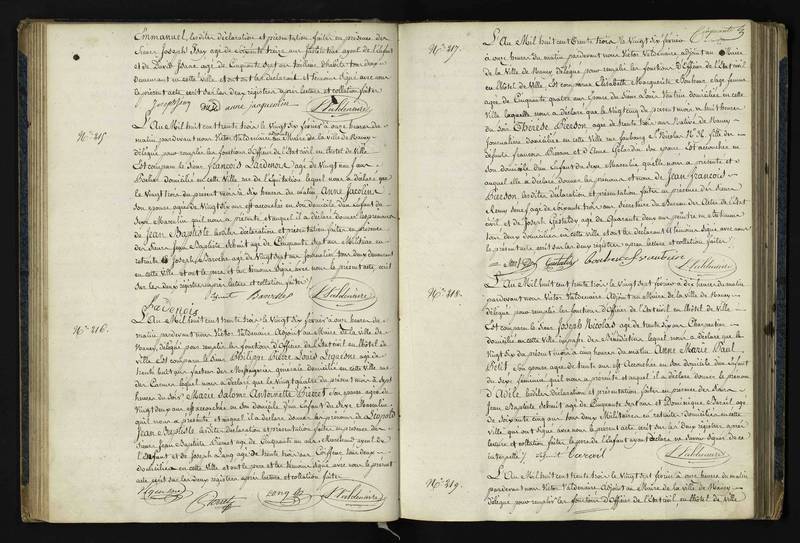 Emmanuel, lesdites déclaration et présentation faites en présence des
Sieurs Joseph agé de soixante treize ans
et de David Isaac agé de Cinquante sept ans
demeurant en cette Ville et ont les déclarant et témoins signé avec nous
le présent acte écrit sur les deux registres après lecture et collation faites
N.º 215
L'An Mil huit cent trente trois le Vingt Six février à onze heures du
matin pardevant nous Victor Valdenaire Adjoint au Maire de la Ville de Nancy
délégué pour remplir les fonctions d'Officier de l'état civil en l'hôtel de Ville
Est comparu le Sieur François Lardenois agé de Vingt neuf ans
domicilié en cette Ville rue de l'Equitation lequel nous a déclaré que
le Vingt trois du présent mois à six heures du matin, Anne Jacolin
son épouse agée de Vingt six ans est accouchée en son domicile d'un Enfant du
Sexe Masculin qu'il nous a présenté et auquel il a déclaré donner les prénoms
de Jean Baptiste, lesdites déclaration et présentation faites en présence
des Sieurs Jean Baptiste Debuit agé de Cinquante sept ans Militaire en
retraite et Joseph agé de Vingt sept ans Journalier tous deux demeurant
en cette ville et ont le père et les témoins signé avec nous le présent acte, écrit
sur les deux registres après lecture et collation faites
N.º 216
L'An Mil huit cent trente trois le Vingt Six février à onze heures du
matin pardevant nous Victor Valdenaire Adjoint au Maire de la ville de
Nancy, délégué pour remplir les fonctions d'Officier de l'état civil en l'hôtel de
Ville Est comparu le Sieur Philippe Pierre Louis Lequesne agé de
trente huit ans facteur des Messageries générales domicilié en cette ville rue
des Carmes lequel nous a déclaré que le Vingt quatre du présent mois à sept
heures du Soir Marie Salomé Antoinette Pierret son épouse agée de
Vingt deux ans est accouchée en son domicile d'un Enfant du Sexe Masculin
qu'il nous a présenté et auquel il a déclaré donner les prénoms de Léopold
Jean Baptiste, lesdites déclaration et présentation faites en présence des
Sieurs Jean Baptiste Pierret agé de Cinquante un ans Marchand ayeul de
l'Enfant et de Joseph Lang agé de trente trois ans Coiffeur tous deux
domiciliés en cette Ville et ont le père et les témoins signé avec nous le présent
acte, écrit sur les deux registres après lecture et collation faites
N.º 217.
L'An Mil huit cent trente trois le Vingt Six février
à onze heures du matin pardevant nous Victor Valdenaire Adjoint au Maire
de la Ville de Nancy délégué pour remplir les fonctions d'Officier de l'état civil
en l'hôtel de Ville, Est comparue Elisabeth Marguerite
agée de Cinquante quatre ans domiciliée en cette
Ville laquelle nous a déclaré que le Vingt cinq du présent mois à huit heures
du soir Thérèse Pierson agée de trente trois ans Native de Nancy
Journalière domiciliée en cette Ville rue faubourg St Nicolas fille de
défunts François Pierson et d'Anne est accouchée en
son domicile d'un Enfant du Sexe Masculin qu'elle nous a présenté et
auquel elle a déclaré donner les prénoms et nom de Jean François
Pierson, lesdites déclaration et présentation faites en présence des Sieurs
Remy agé de soixante trois ans Secrétaire du Bureau des Actes de l'état
civil, et de Joseph Gastaldy agé de Quarante deux ans peintre
tous deux domiciliés en cette ville et ont les déclarant et témoins signé avec nous
le présent acte écrit sur les deux registres après lecture et collation faites
N.º 218.
L'An Mil huit cent trente trois le Vingt Sept février à dix heures du matin
pardevant nous Victor Valdenaire Adjoint au Maire de la Ville de Nancy
délégué pour remplir les fonctions d'Officier de l'état civil en l'hôtel de Ville
Est comparu le Sieur Joseph Nicolas agé de trente six ans Charpentier
domicilié en cette Ville lequel nous a déclaré que le
Vingt six du présent mois à cinq heures du matin Anne Marie Paul
Petit Son épouse agée de trente ans est accouchée en son domicile d'un Enfant
du sexe féminin qu'il nous a présenté et auquel il a déclaré donner le prénom
d'Adèle, lesdites déclaration et présentation faites en présence des Sieurs
Jean Baptiste Debuit agé de Cinquante sept ans et Dominique agé
de soixante cinq ans tous deux Militaires en retraite domiciliés en cette
ville, qui ont signé avec nous le présent acte écrit sur les deux registres après
lecture et collation faites, le père de l'Enfant ayant déclaré ne savoir signer de ce
interpellé
N.º 219.
L'An Mil huit cent trente trois le Vingt Sept février à onze heures du matin
pardevant nous Victor Valdenaire Adjoint au Maire de la ville de Nancy
délégué pour remplir les fonctions d'Officier de l'état civil en l'hôtel de Ville